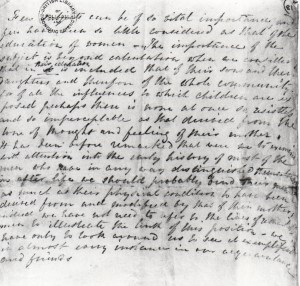 Few subjects can be of so vital importance and
few have been so little considered as that of the
education of women. The importance of the
subject is beyond calculation when we consider
in it is included that of their sons and their
daughters and therefore of the whole community
for of all the influences to which children are ex
posed perhaps there is none at once so decisive
and so imperceptible as that derived from the
tone of thought and feeling of their mother.
It has been before remarked that were we to
attention into the early history of most of the
men who have in any way distinguished themselves
in after life we should probably find their
as much as their physical condition to have been
derived from and modified by that of their mother
indeed we have not need to open the lives of
men to illustrate the truth of this position - we
have only to look around us to see it exemplified
in almost every instance in our acquaintance
and friends